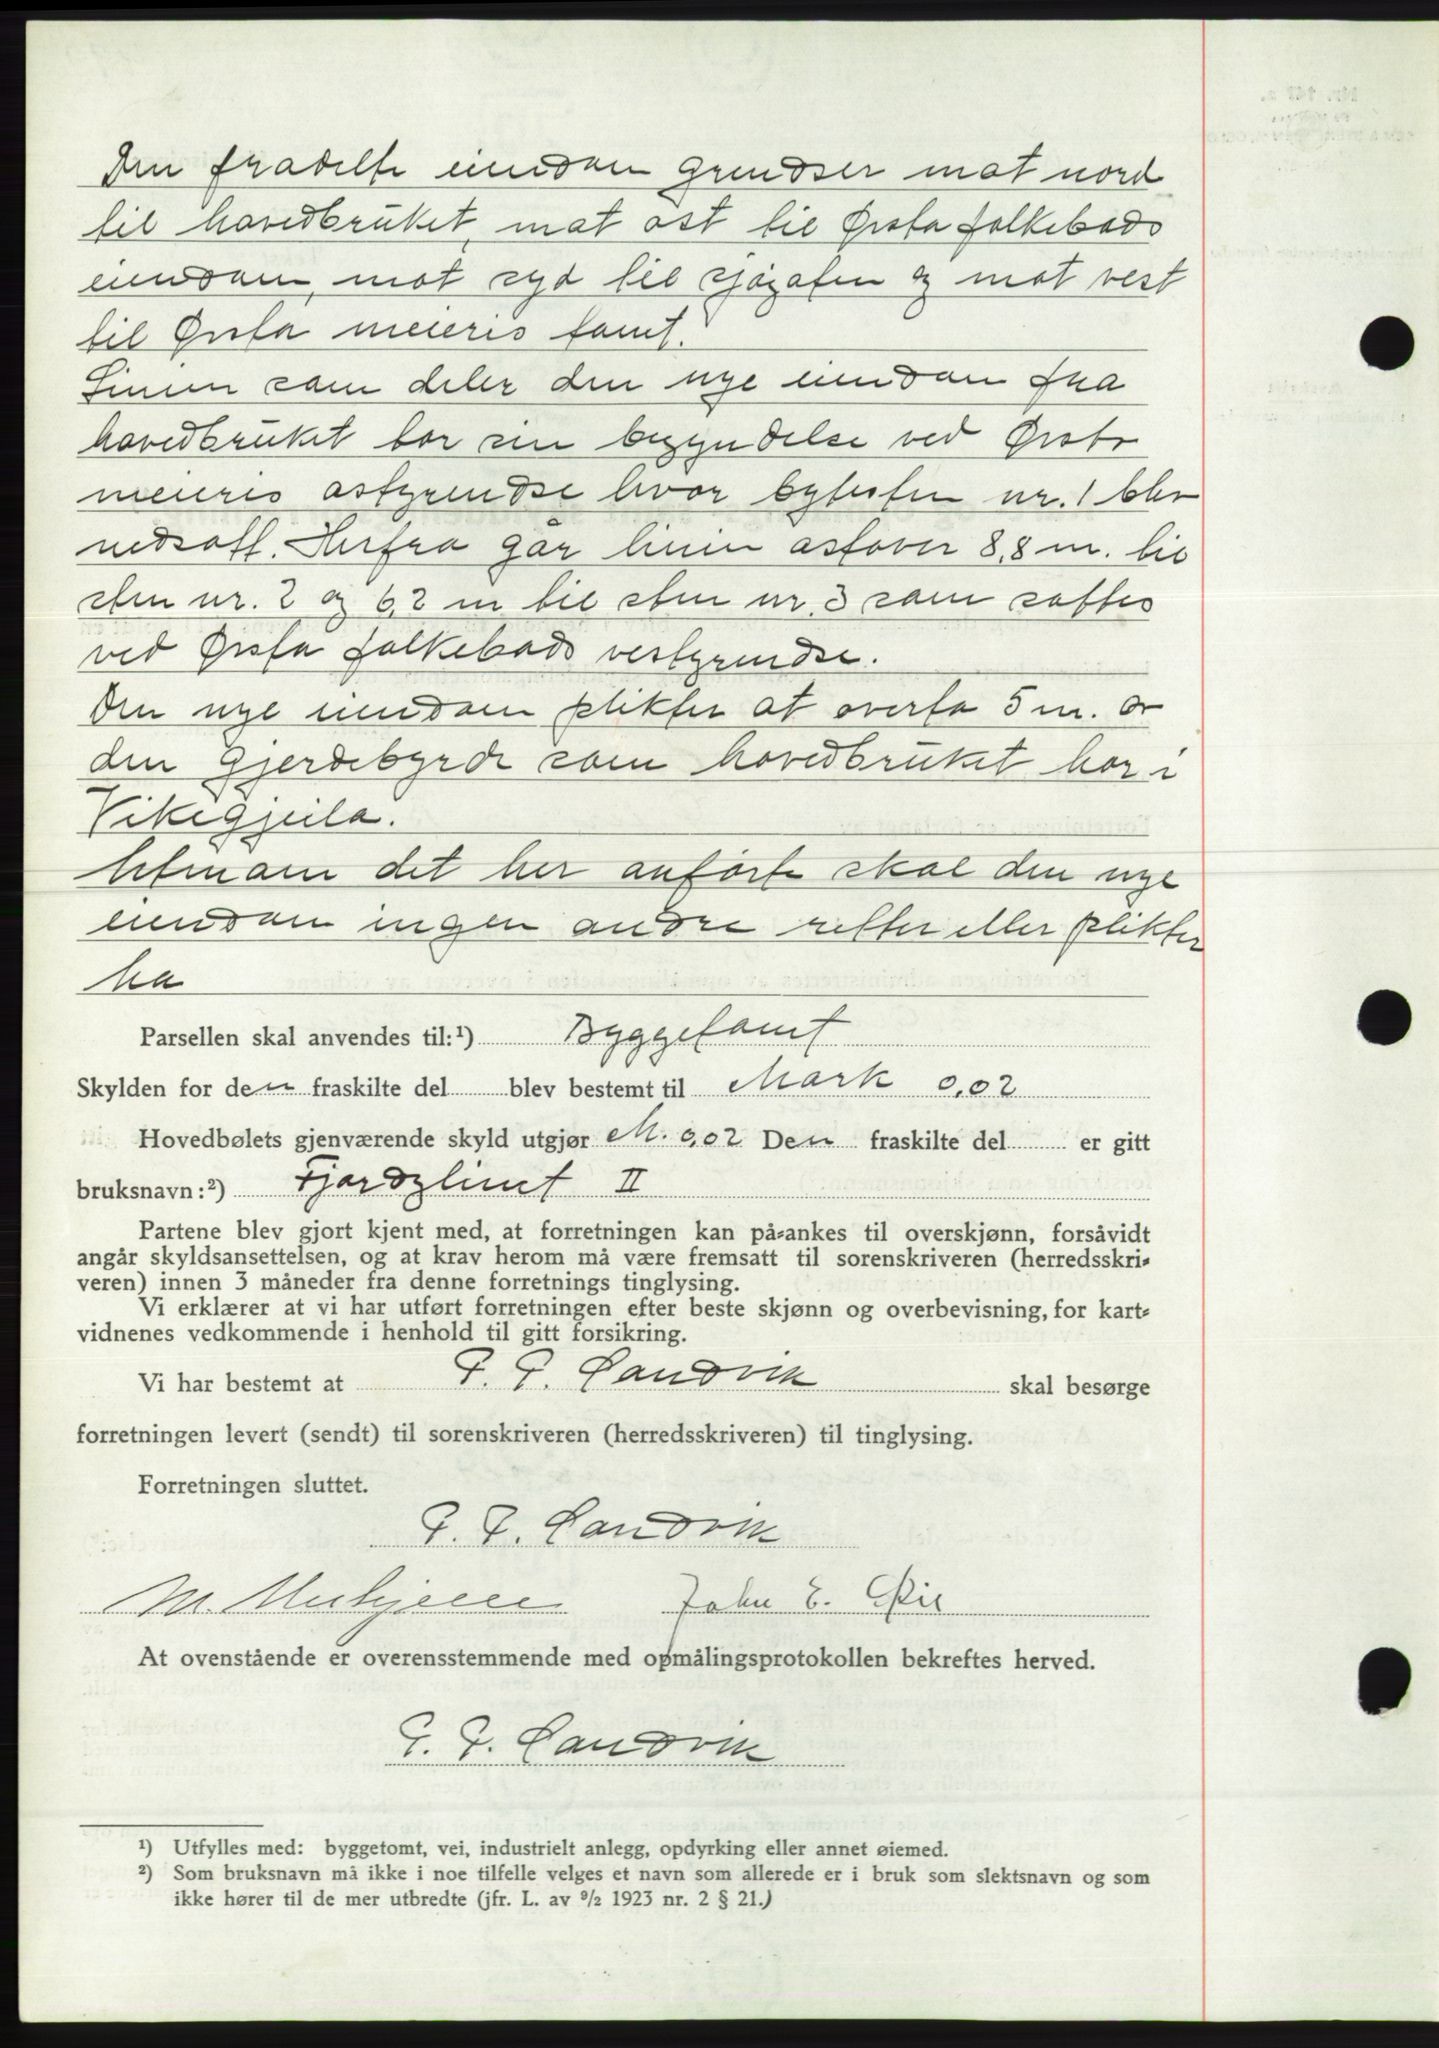 Den fradelte eiendom grendser mot nord
til hovedbruket, mot øst til Ørsta folkebads
eiendom, mot syd til sjøgaten og mot vest
til Ørsta meieris tomt.
Linien som deler den nye eiendom fra
hovedbruket tar sin begyndelse ved Ørsta
meieris østgrendse hvor bytesten nr. 1 blev
nedsatt. Herfra går linien østover 8,8 m. til
sten nr. 2 og 6,2 m til sten nr. 3 som sattes
ved Ørsta folkebads vestgrendse.
Den nye eiendom plikter at overta 5 m. av
den gjerdebyrde som hovedbruket har i
Vikegjeila.
Utenom det her anførte skal den nye
eiendom ingen andre retter eller plikter
ha
Parsellen skal anvendes til:¹) Byggetomt
Skylden for den fraskilte del blev bestemt til Mark 0,02
Hovedbølets gjenværende skyld utgjør M. 0,02 Den fraskilte del er gitt
bruksnavn:²) Fjordglimt II
Partene blev gjort kjent med, at forretningen kan på-ankes til overskjønn, forsåvidt
angår skyldsansettelsen, og at krav herom må være fremsatt til sorenskriveren (herredsskri-
veren) innen 3 måneder fra denne forretnings tinglysing.
Vi erklærer at vi har utført forretningen efter beste skjønn og overbevisning, for kart-
vidnenes vedkommende i henhold til gitt forsikring.
Vi har bestemt at P. P. Sandvik skal besørge
forretningen levert (sendt) til sorenskriveren (herredsskriveren) til tinglysing.
Forretningen sluttet.
P. P. Sandvik
M. John E. Øie
At ovenstående er overensstemmende med opmålingsprotokollen bekreftes herved.
P. P. Sandvik
¹) Utfylles med: byggetomt, vei, industrielt anlegg, opdyrking eller annet øiemed.
²) Som bruksnavn må ikke i noe tilfelle velges et navn som allerede er i bruk som slektsnavn og som
ikke hører til de mer utbredte (jfr. L. av 9/2 1923 nr. 2 § 21.)